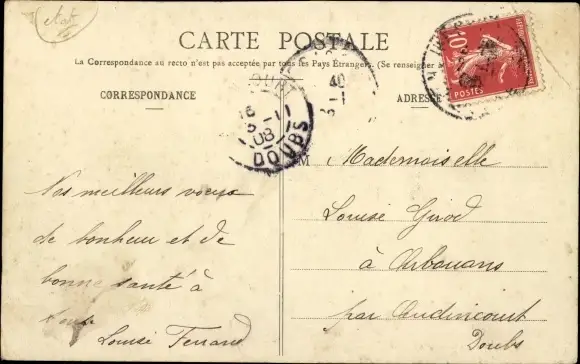 CARTE POSTALE
La Correspondance au recto n'est pas acceptée par tous les Pays Étrangers. (Se renseigner
CORRESPONDANCE
ADRESSE
10
POSTES
16
5-11
08
DOUBS
40
M Mademoiselle
Louise Girod
à Arbouans
par Audincourt
Doubs
Nos meilleurs voeux
de bonheur et de
bonne santé à
Louise Ferrand